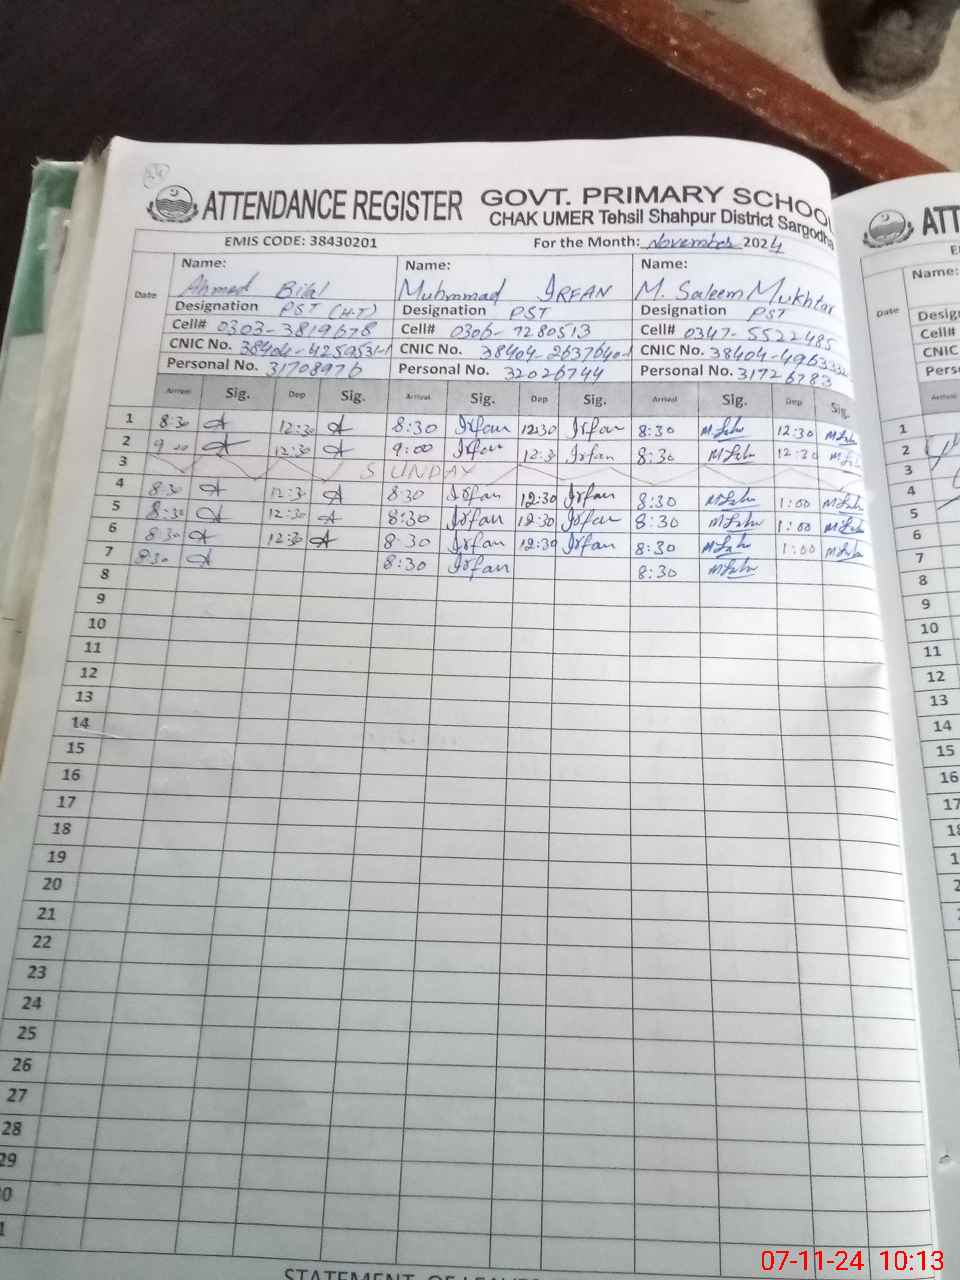 ATTENDANCE REGISTER GOVT. PRIMARY SCHOO
CHAK UMER Tehsil Shahpur District Sargodha
EMIS CODE: 38430201 For the Month: November 2024
Date
Name: Name: Name:
Ahmed Bilal Muhmmad IRFAN M. Saleem Mukhtar
Designation PST (H-T) Designation PST Designation PST
Cell# 0303-3819678 Cell# 0306-7280513 Cell# 0347-5522485
CNIC No. CNIC No. 38404-2637640-1 CNIC No.
Personal No. 31708976 Personal No. 32026744 Personal No. 31726783
Arrival Sig. Dep Sig. Arrival Sig. Dep Sig. Arrival Sig. Dep Sig.
1 8:30 12:30 8:30 Irfan 12:30 Irfan 8:30 12:30
2 9:00 12:30 9:00 Irfan 12:3 Irfan 8:30 12:30
3 SUNDAY
4 8:30 12:30 8:30 Irfan 12:30 Irfan 8:30 1:00
5 8:30 12:30 8:30 Irfan 12:30 Irfan 8:30 1:00
6 8:30 12:30 8:30 Irfan 12:30 Irfan 8:30 1:00
7 8:30 8:30 Irfan 8:30
8
9
10
11
12
13
14
15
16
17
18
19
20
21
22
23
24
25
26
27
28
29
30
1
STATEMENT OF LEAVES
ATT
E
Name:
Date
Desig
Cell#
CNIC
Pers
Arrival
1
2
3
4
5
6
7
8
9
10
11
12
13
14
15
16
17
18
07-11-24 10:13